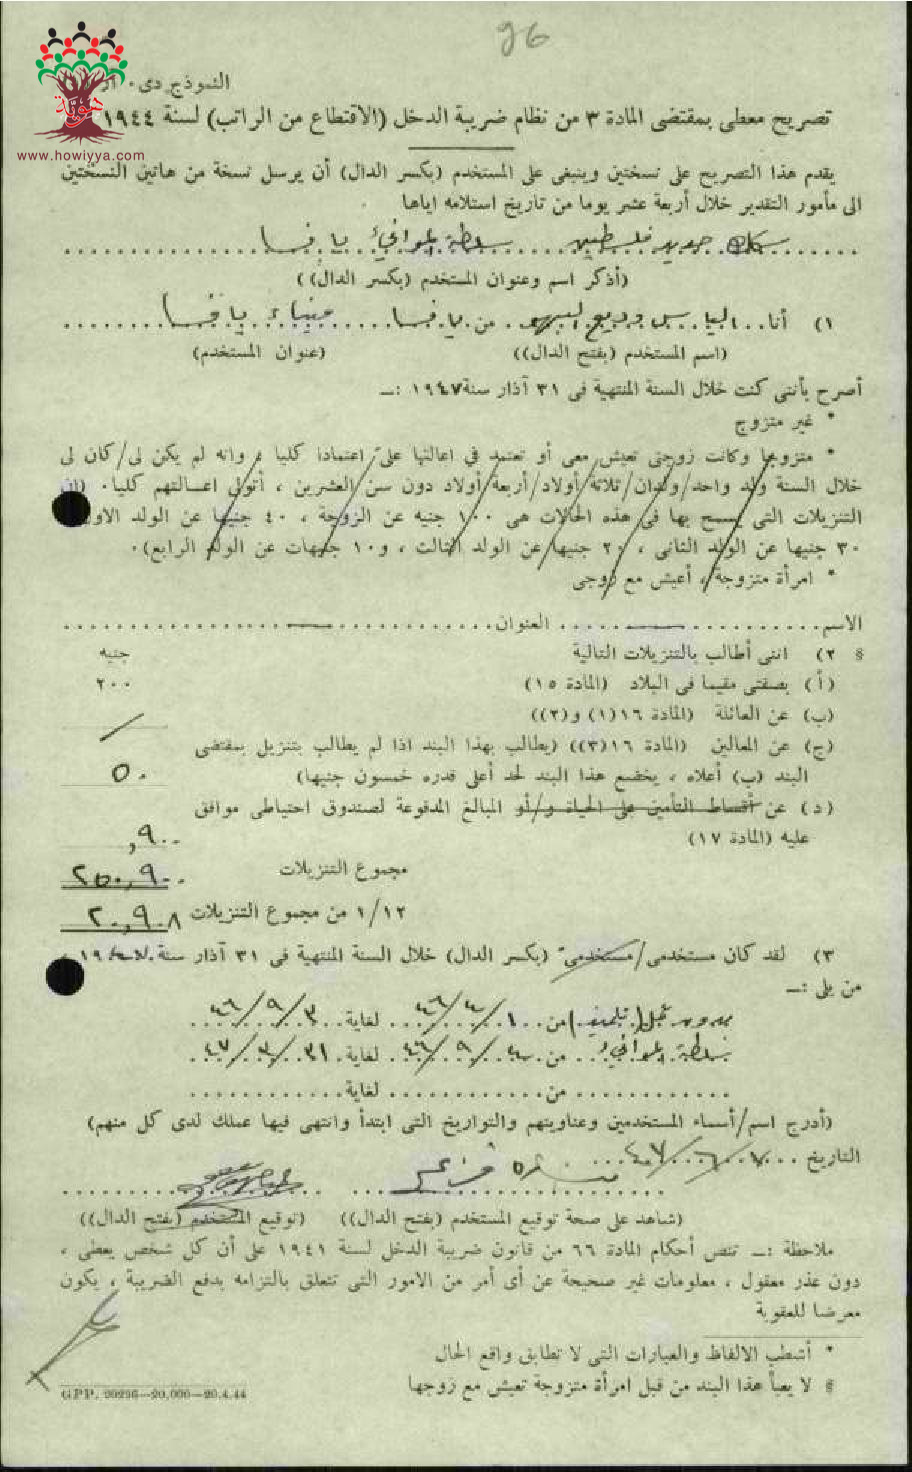 96
النموذج دى٠
تصريح معطى بمقتضى المادة ٣ من نظام ضريبة الدخل (الاقتطاع من الراتب) لسنة ١٩٤٤
هويّة
www.howiyya.com
يقدم هذا التصريح على نسختين وينبغى على المستخدم (بكسر الدال) أن يرسل نسخة من هاتين النسختين
الى مأمور التقدير خلال أربعة عشر يوما من تاريخ استلامه اياها
سكك حديد فلسطين سلطة الموانيء يافا
(أذكر اسم وعنوان المستخدم (بكسر الدال))
١) أنا الياس وديع من يافا ميناء يافا
(اسم المستخدم (بفتح الدال)) (عنوان المستخدم)
أصرح بأننى كنت خلال السنة المنتهية فى ٣١ آذار سنة ١٩٤٧ :ـ
* غير متزوج
* متزوجا وكانت زوجتى تعيش معى أو تعتمد فى اعالتها على اعتمادا كليا ، وانه لم يكن لى/كان لى
خلال السنة ولد واحد/ولدان/ثلاثة أولاد/أربعة أولاد دون سن العشرين ، أتولى اعالتهم كليا٠ (ان
التنزيلات التى يسمح بها فى هذه الحالات هى ١٠٠ جنيه عن الزوجة ، ٤٠ جنيها عن الولد الاول
٣٠ جنيها عن الولد الثانى ، ٢٠ جنيها عن الولد الثالث ، و١٠ جنيهات عن الولد الرابع)٠
* امرأة متزوجة ، أعيش مع زوجى
الاسم العنوان
§ ٢) اننى أطالب بالتنزيلات التالية جنيه
(أ) بصفتى مقيما فى البلاد (المادة ١٥) ٢٠٠
(ب) عن العائلة (المادة ١٦(١) و(٢))
(ج) عن المعالين (المادة ١٦(٣)) (يطالب بهذا البند اذا لم يطالب بتنزيل بمقتضى
البند (ب) أعلاه ، يخضع هذا البند لحد أعلى قدره خمسون جنيها) ٥٠
(د) عن أقساط التأمين على الحياة و/أو المبالغ المدفوعة لصندوق احتياطى موافق
عليه (المادة ١٧) ,٩٠٠
مجموع التنزيلات ٢٥٠,٩٠٠
١/١٢ من مجموع التنزيلات ٢٠,٩٠٨
٣) لقد كان مستخدمى/مستخدمىّ (بكسر الدال) خلال السنة المنتهية فى ٣١ آذار سنة ١٩٤٧
من يلى :ـ
من ١/٤/٤٦ لغاية ٣٠/٩/٤٦
سلطة الموانيء من ٤٦/٩/ لغاية ٣١/٣/٤٧
من لغاية
(أدرج اسم/أسماء المستخدمين وعناوينهم والتواريخ التى ابتدأ وانتهى فيها عملك لدى كل منهم)
التاريخ ٧/٦/٤٧
(شاهد على صحة توقيع المستخدم (بفتح الدال)) (توقيع المستخدم (بفتح الدال))
ملاحظة :ـ تنص أحكام المادة ٦٦ من قانون ضريبة الدخل لسنة ١٩٤١ على أن كل شخص يعطى ،
دون عذر معقول ، معلومات غير صحيحة عن أى أمر من الامور التى تتعلق بالتزامه بدفع الضريبة ، يكون
معرضا للعقوبة
* أشطب الالفاظ والعبارات التى لا تطابق واقع الحال
§ لا يعبأ هذا البند من قبل امرأة متزوجة تعيش مع زوجها
GPP. 20296—20,000—20.4.44